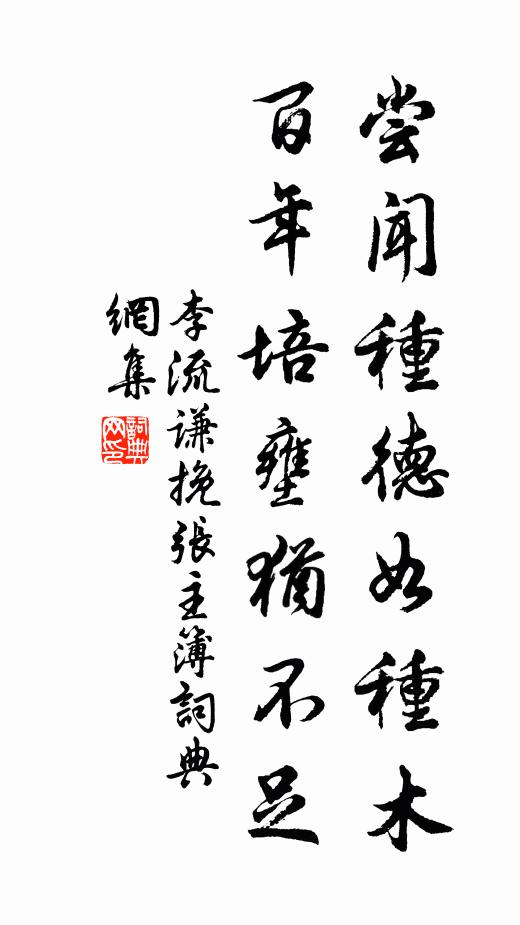 尝闻種德如種木
百年培壅猶不足
李流謙挽張主簿詞典
網集
詞典
网印